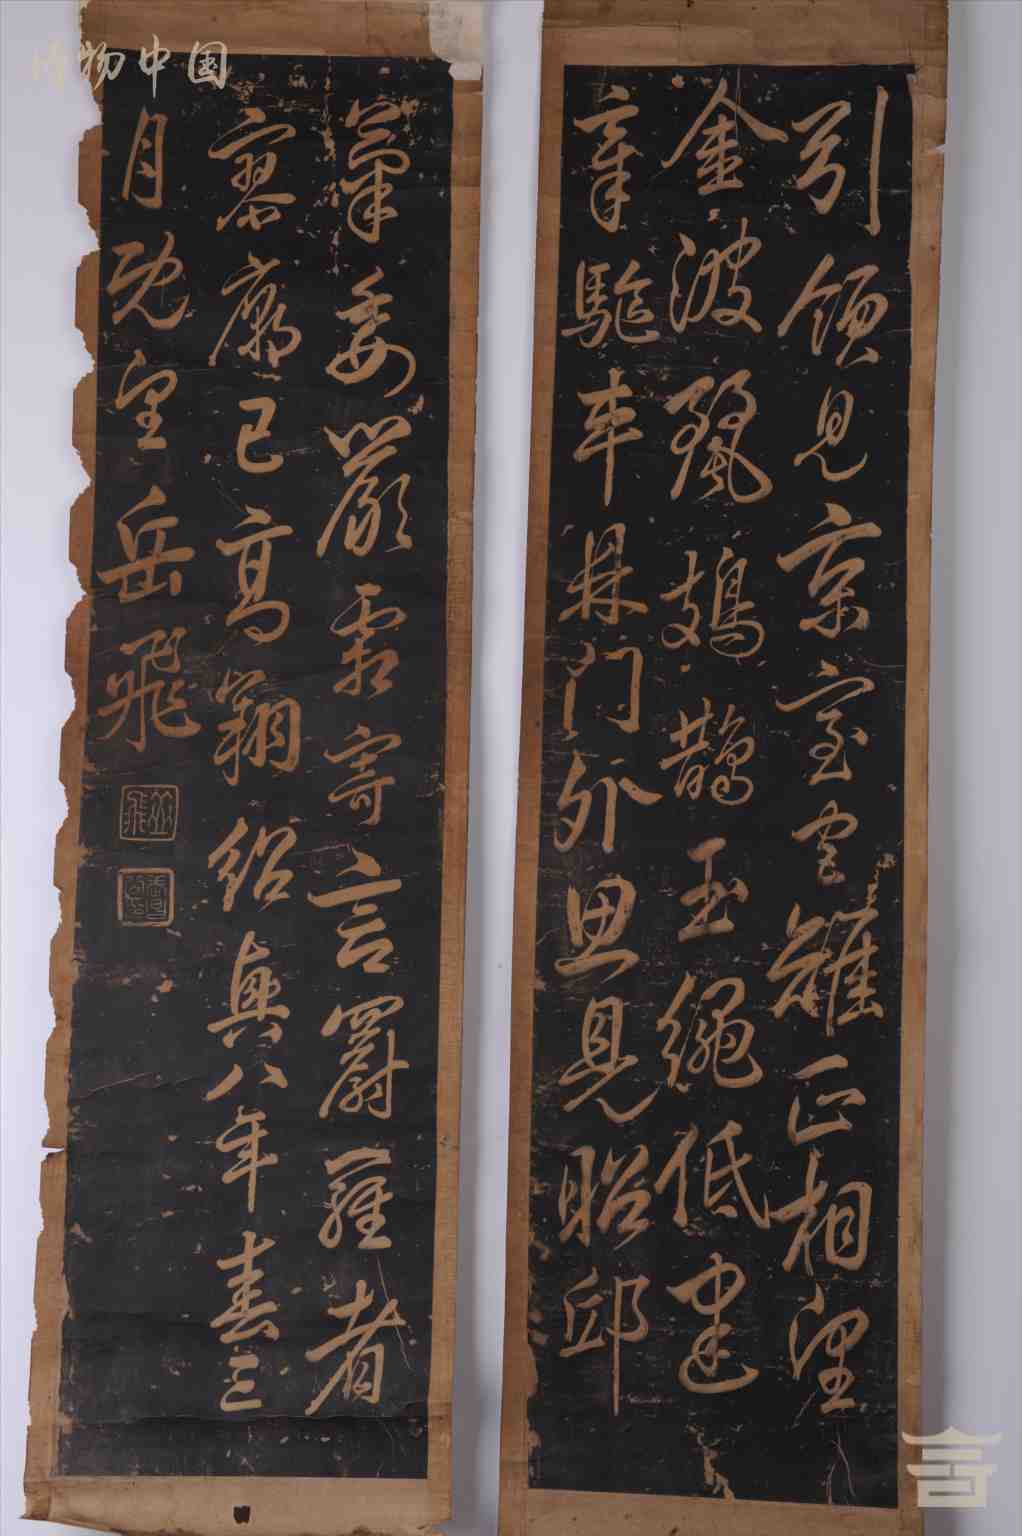 引領見京室宮雉正相望
金波麗鳷鵲玉繩低建
章駈車鼎門外思見昭邱
菊委嚴霜寄言罻羅者
寥廓已高翔紹興八年春三
月既望岳飛
博物中国